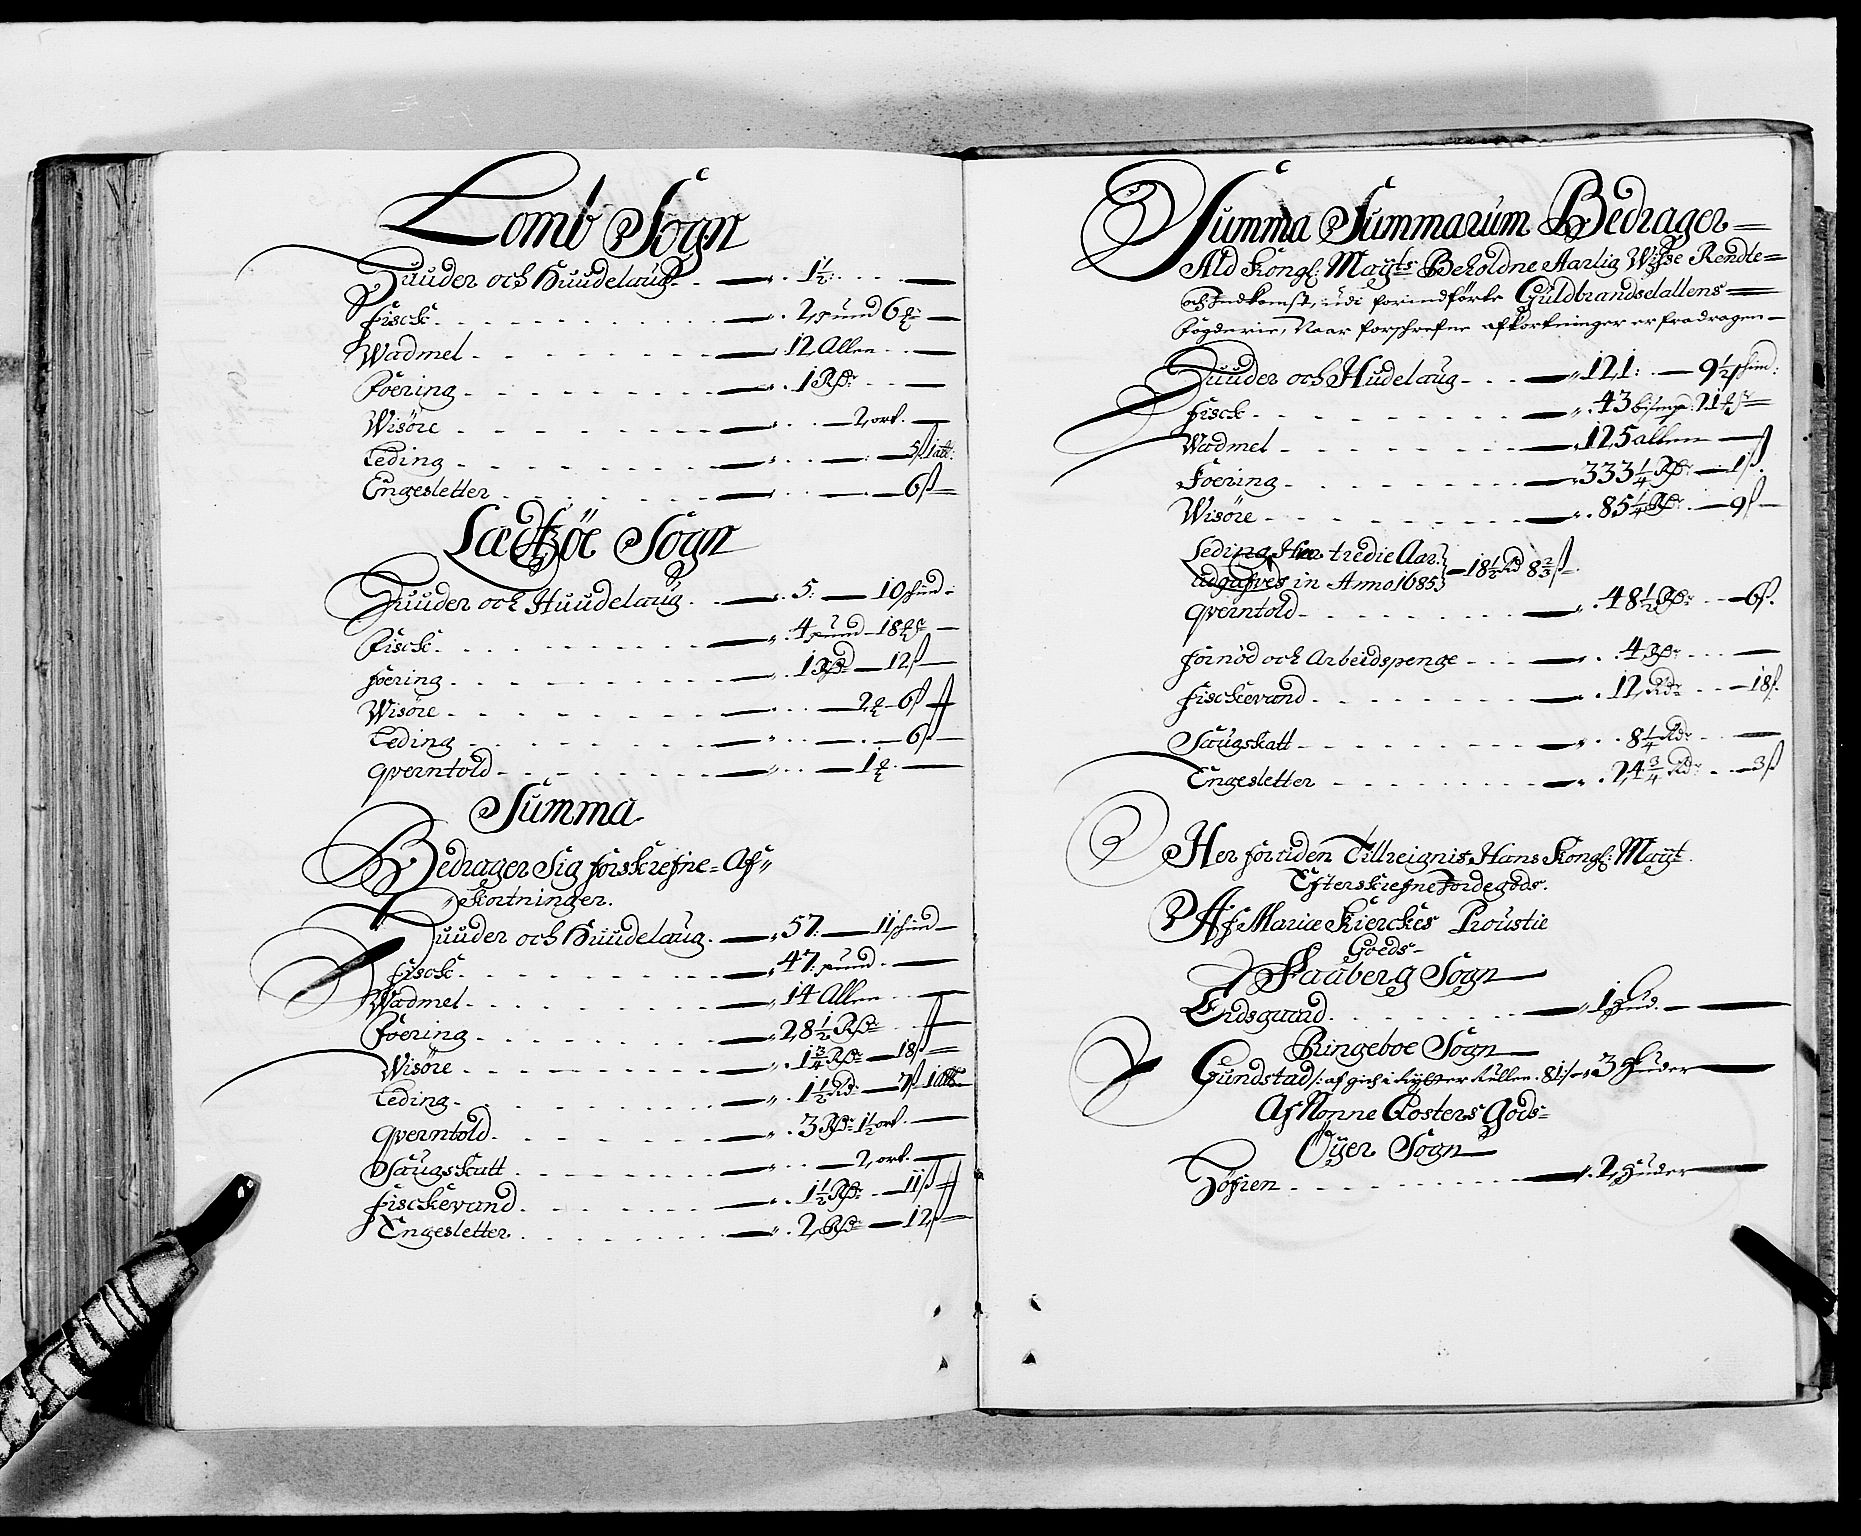 Lomb Sogn
Huuder och Huudelaug - 1½
Fisck - 2 pund 6
Wadmel - 12 Allen
Foering - 1 Rdr
Wisöre - 2 ort
Leding - 5 ß 1 alb:
Engesletter - 6 ß
Lædtzöe Sogn
Huuder och Huudelaug - 5: 10 schind
Fisck - 4 pund 18
Foering - 1 Rdr 12 ß
Wisöre - 6 ß
Leding - 6 ß
Qverntold - 1
Summa
Bedrager Sig forskrefne Af-
Kortninger.
Huuder och Huudelaug - 57: 11 schind
Fisck - 47 pund
Wadmel - 14 Allen
Foering - 28½ Rdr
Wisöre - 1¾ Rdr 18 ß
Leding - 1½ Rd 7 ß 1 alb
Qverntold - 3 Rdr 1½ ort
Saugskatt - 2 ort
Fisckevand - 1½ Rdr 11 ß
Engesletter - 2 Rdr 12 ß
Summa Summarum Bedrager
Ald Kongl: Mayts Beholdne Aarlig Wisse Rendte
och Indkomst, udi forindförte Guldbrandsdallens
Fogderie, Naar forschrefne afkortninger er fradragen
Huuder och Hudelaug - 121: 9½ schind:
Fisck - 43 bismpd: 21
Wadmel - 125 allen
Foering - 333¼ Rdr 1 ß
Wisöre - 85¼ Rdr 9 ß
Leding Hver tredie Aar
udgifves in Anno 1685 - 18½ Rd 8⅔ ß
Qverntold - 48½ Rdr 6 ß
Fornöd och Arbeidspenge - 4 Rdr
Fisckevand - 12 Rdr 18 ß
Saugskatt - 8¼ Rdr
Engesletter - 24¾ Rdr 3 ß
Her foruden Tillreignis Hans Kongl: Mayt
Efterskrefne Jordegods.
Af Mariæ Kierckes Proustie
Goeds
Faaberg Sogn
Eidsgaard - 1 Hud
Ringeboe Sogn
Gundstad /: af gich i Rytter Rullen 81 :/ 3 Huder
Af Nonne Closters Gods
Öyer Sogn
- 2 Huder